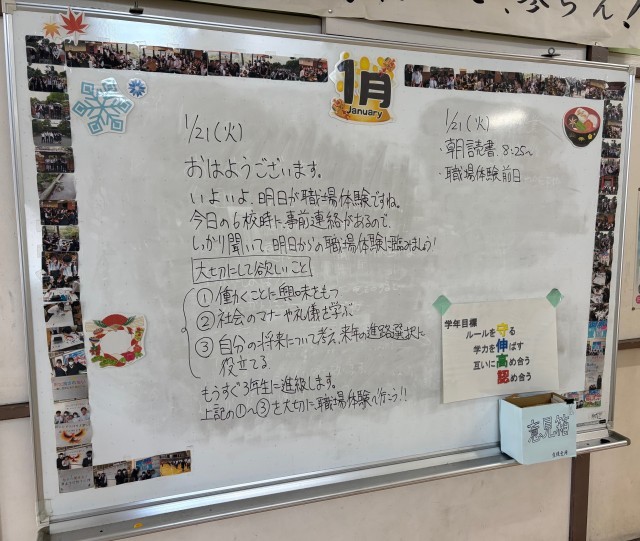 1月
January
1/21(火)
おはようございます。
いよいよ、明日が職場体験ですね。
今日の6校時に事前連絡があるので、
しっかり聞いて、明日からの職場体験に臨みましょう!
大切にして欲しいこと
① 働くことに興味をもつ
② 社会のマナーや礼儀を学ぶ
③ 自分の将来について考え、来年の進路選択に
役立てる
もうすぐ3年生に進級します。
上記の①~③を大切に、職場体験へ行こう!!
1/21(火)
・朝読書 8:25~
・職場体験前日
学年目標
ルールを守る
学力を伸ばす
互いに高め合う
認め合う
意見箱